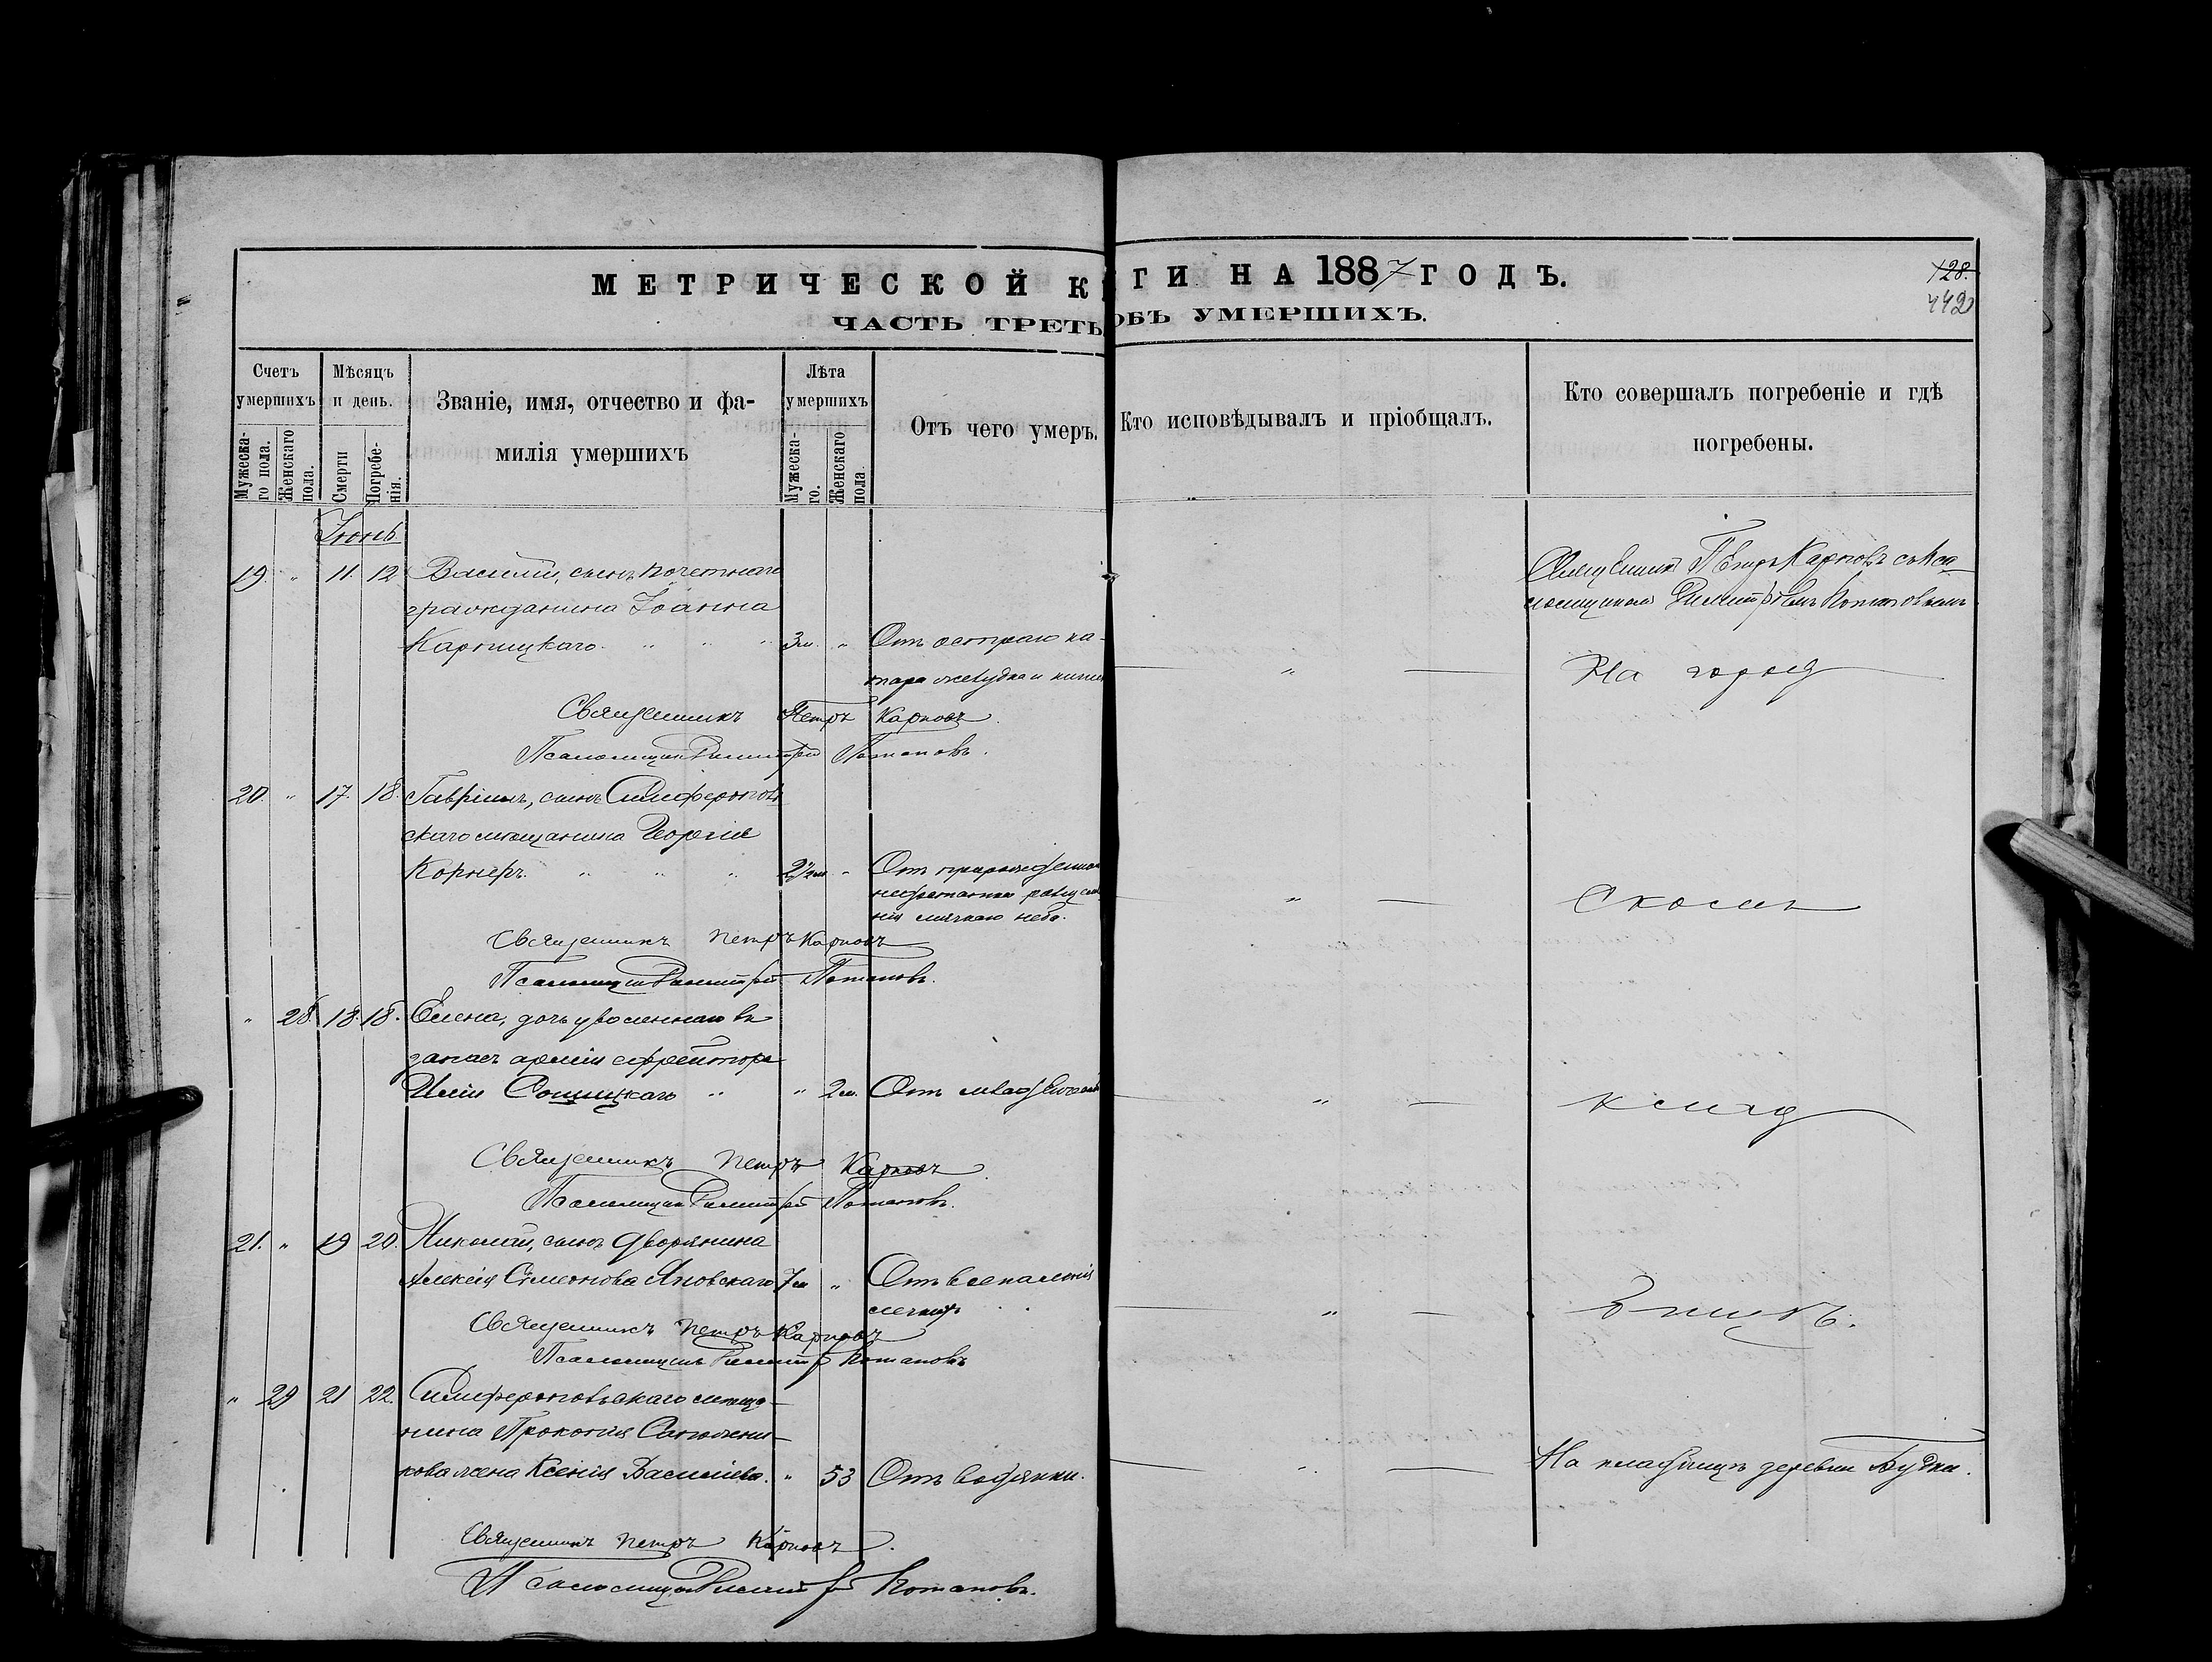 МЕТРИЧЕСКОЙ К ГИ НА 1887 ГОДЪ.
ЧАСТЬ ТРЕТЬ ОБЪ УМЕРШИХЪ.
128.
442
Счетъ умершихъ
Мужеска-го пола.
Женскаго пола.
Мѣсяцъ и день.
Смерти
Погребе-нія.
Званіе, имя, отчество и фа-
милія умершихъ
Лѣта умершихъ
Мужеска-го.
Женскаго пола
Отъ чего умеръ.
Кто исповѣдывалъ и пріобщалъ.
Кто совершалъ погребеніе и гдѣ
погребены.
Іюнь
19. " 11. 12 Василій, сынъ почетнаго
гражданина Іоанна
Карпицкаго. " " " 3м. " Отъ остраго ка-
тара желудка и кише
Священникъ Петръ Карповъ съ пса
ломщикомъ Димитріемъ Потаповымъ
На город
Священникъ Петръ Карповъ.
Псаломщикъ Димитрій Потаповъ.
20. " 17. 18. Гавріилъ, сынъ Симферополь
скаго мѣщанина Георгія
Корнеръ. " " " "
Отъ прирожденна
недостатка
мягкаго неба.
скомъ
Священникъ Петръ Карповъ
Псаломщикъ Димитрій Потаповъ.
" 28. 18. 18. Елена, дочь уволеннаго въ
запасъ арміи ефрейтора
Иліи " " 2м. Отъ
клад
Священникъ Петръ Карповъ.
Псаломщикъ Димитрій Потаповъ.
21. " 19 20. Николай, сынъ дворянина
Алексія Симеонова Яновскаго 7м " Отъ воспаленія
легкихъ
бищѣ.
Священникъ Петръ Карповъ
Псаломщикъ Димитрій Потаповъ
" 29 21 22. Симферопольскаго мѣща-
нина Прокопія
кова жена Ксенія Васильева. " 53 Отъ водянки.
На кладбищѣ деревни Будки.
Священникъ Петръ Карповъ.
Псаломщикъ Димитрій Потаповъ.